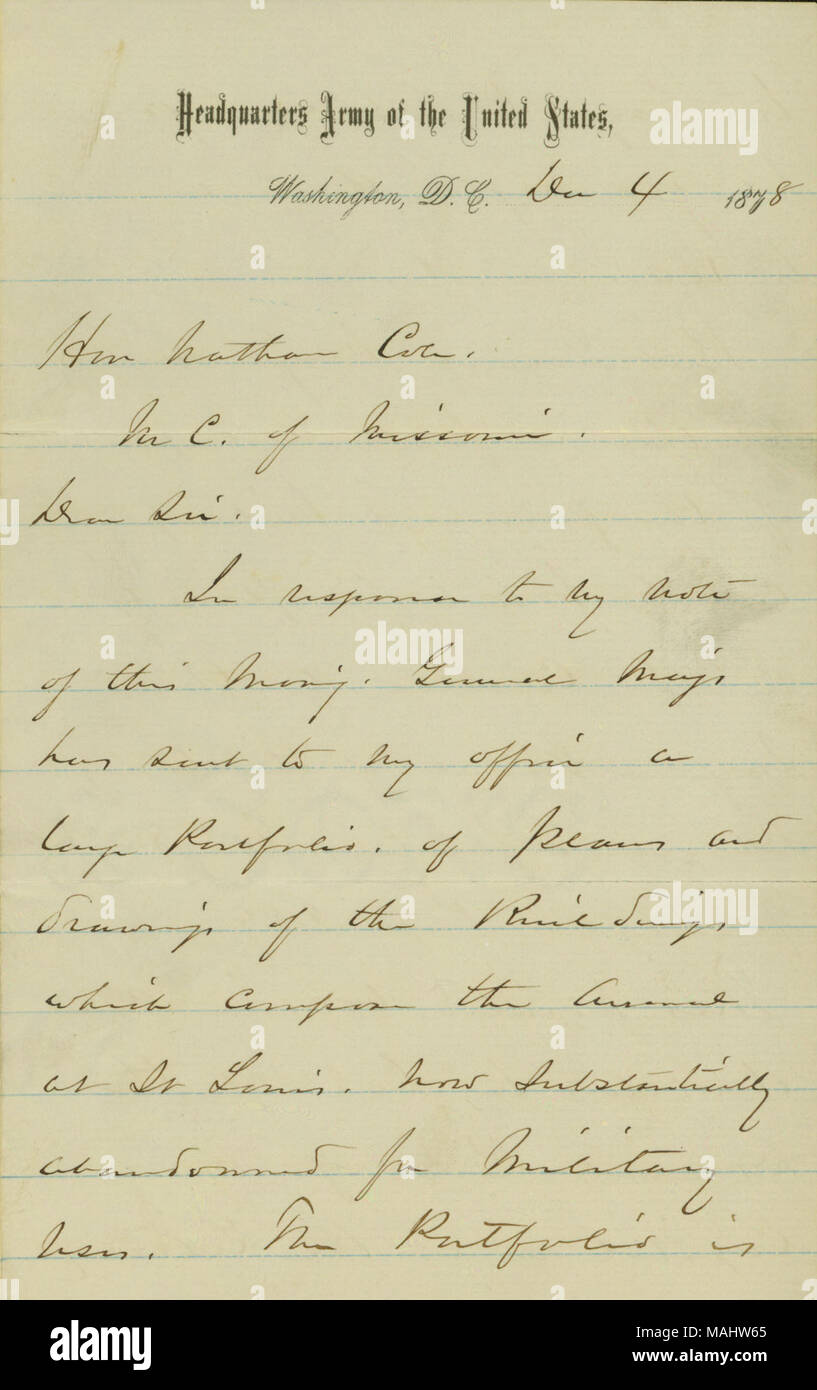 Headquarters Army of the United States,
Washington, D. C. Dec 4 1878
Hon Nathan Cole.
M C. of Missouri.
Dear Sir.
In response to my note
of this morng. General Meigs
has sent to my office a
large Portfolio. of plans and
drawings of the Buildings
which compose the Arsenal
at St Louis. now substantially
abandonned for Military
uses. The Portfolio is
alamy stock photo
MAHW65
www.alamy.com